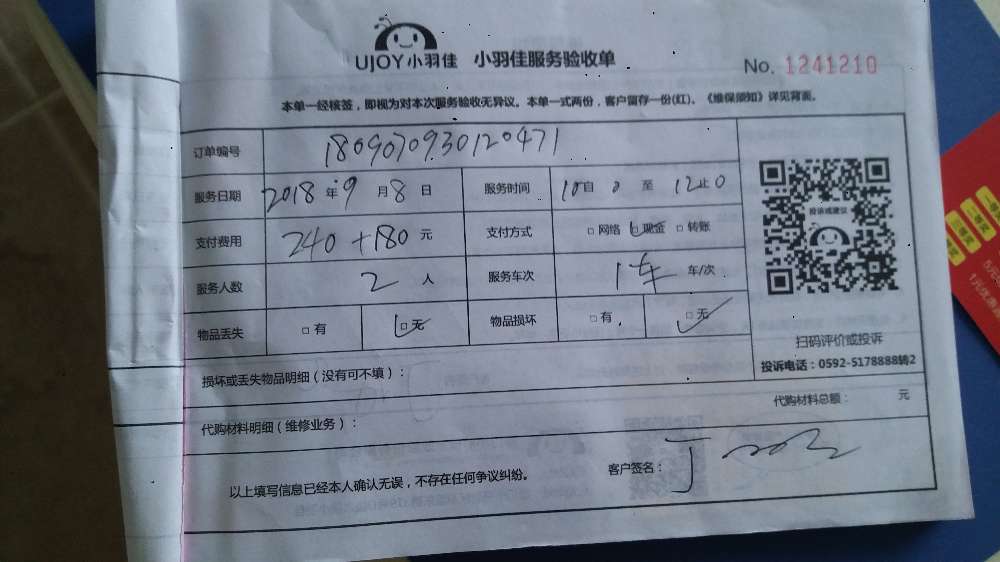 UJOY小羽佳 小羽佳服务验收单
No. 1241210
本单一经核签，即视为对本次服务验收无异议。本单一式两份，客户留存一份(红)、《维保须知》详见背面。
订单编号 1809070930120471
服务日期 2018年9月8日 服务时间 10自0至12止0
支付费用 240+180元 支付方式 □网络 □现金 □转账
服务人数 2人 服务车次 1车 车/次
物品丢失 □有 □无 物品损坏 □有 □无
投诉或建议
扫码评价或投诉
投诉电话：0592-5178888转2
损坏或丢失物品明细（没有可不填）：
代购材料明细（维修业务）： 代购材料总额： 元
以上填写信息已经本人确认无误，不存在任何争议纠纷。 客户签名：